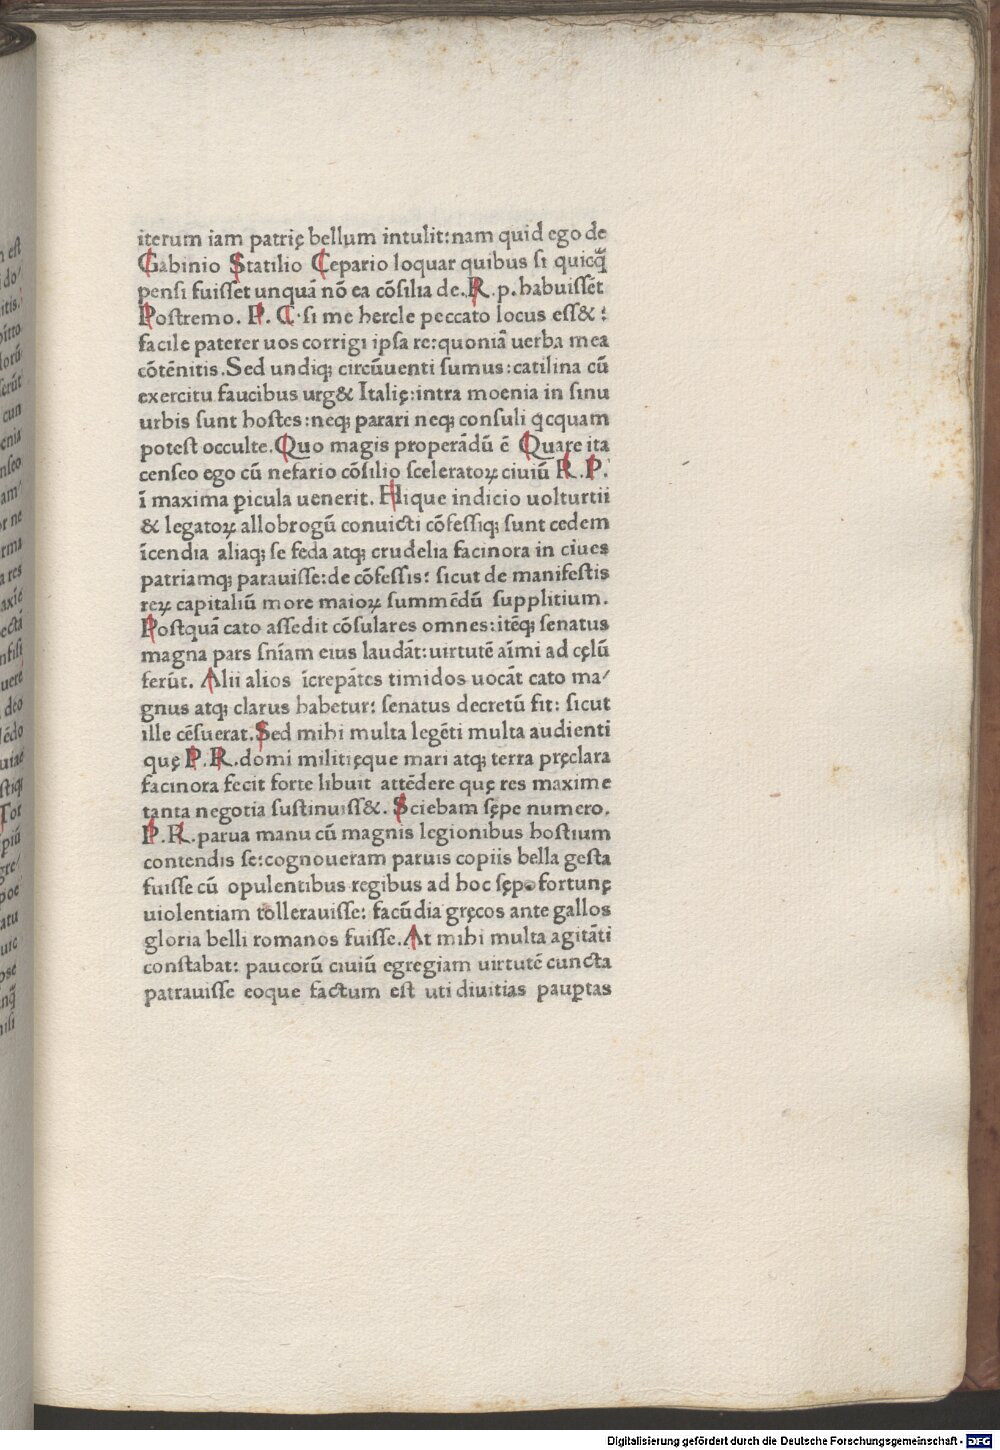 iterum iam patrię bellum intulit:nam quid ego de
Gabinio Statilio Cepario loquar quibus si quicq̄
pensi fuisset unquā nō ea cōsilia de.R.p.habuissēt
Postremo. P. C. si me hercle peccato locus ess& :
facile paterer uos corrigi ipsa re:quoniā uerba mea
cōtēnitis.Sed undiq; circūuenti sumus:catilina cū
exercitu faucibus urg& Italię:intra moenia in sinu
urbis sunt hostes:neq; parari neq; consuli qcquam
potest occulte.Quo magis properādū ē Quare ita
censeo ego cū nefario cōsilio sceleratoꝝ ciuiū R.P.
ī maxima picula uenerit. Hique indicio uolturtii
& legatoꝝ allobrogū conuicti cōfessiq; sunt cedem
īcendia aliaq; se feda atq; crudelia facinora in ciues
patriamq; parauisse:de cōfessis: sicut de manifestis
reꝝ capitaliū more maioꝝ summēdū supplitium.
Postquā cato assedit cōsulares omnes:itēq; senatus
magna pars sn̄iam eius laudāt:uirtutē aīmi ad cęlū
ferūt. Alii alios īcrepātes timidos uocāt cato ma/
gnus atq; clarus habetur: senatus decretū fit: sicut
ille cēsuerat.Sed mihi multa legēti multa audienti
quę P.R.domi militięque mari atq; terra pręclara
facinora fecit forte libuit attēdere quę res maxime
tanta negotia sustinuiss&. Sciebam sępe numero.
P.R.parua manu cū magnis legionibus hostium
contendis se:cognoueram paruis copiis bella gesta
fuisse cū opulentibus regibus ad hoc sępe fortunę
uiolentiam tollerauisse: facūdia gręcos ante gallos
gloria belli romanos fuisse.At mihi multa agitāti
constabat: paucorū ciuiū egregiam uirtutē cuncta
patrauisse eoque factum est uti diuitias pauptas
Digitalisierung gefördert durch die Deutsche Forschungsgemeinschaft - DFG